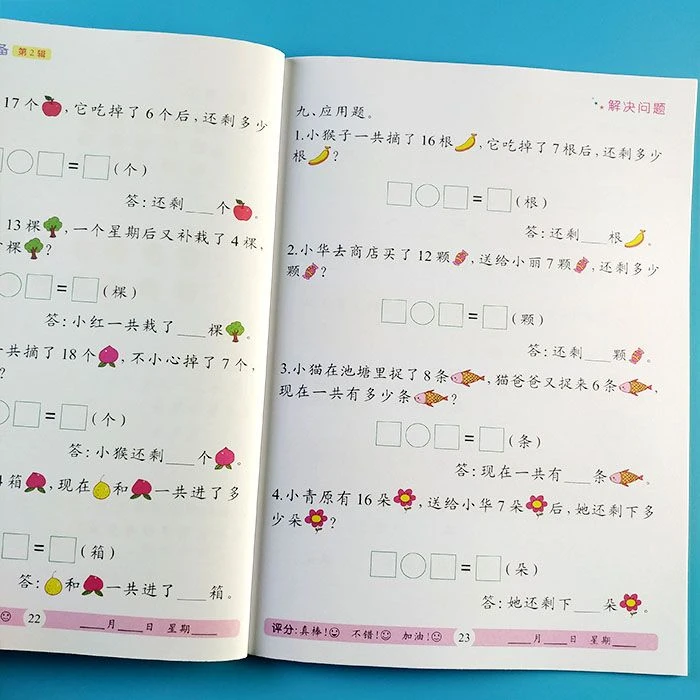 备 第2辑
17个，它吃掉了6个后，还剩多少
=（个）
答：还剩___个。
13棵，一个星期后又补栽了4棵，
棵？
=（棵）
答：小红一共栽了___棵。
共摘了18个，不小心掉了7个，
？
=（个）
答：小猴还剩___个。
箱，现在和一共进了多
=（箱）
答：和一共进了___箱。
22 ___月___日 星期___
解决问题
九、应用题。
1.小猴子一共摘了16根，它吃掉了7根后，还剩多少
根？
□○□=□（根）
答：还剩___根。
2.小华去商店买了12颗，送给小丽7颗，还剩多少
颗？
□○□=□（颗）
答：还剩___颗。
3.小猫在池塘里捉了8条，猫爸爸又捉来6条，
现在一共有多少条？
□○□=□（条）
答：现在一共有___条。
4.小青原有16朵，送给小华7朵后，她还剩下多
少朵？
□○□=□（朵）
答：她还剩下___朵。
评分：真棒！ 不错！ 加油！ 23 ___月___日 星期___